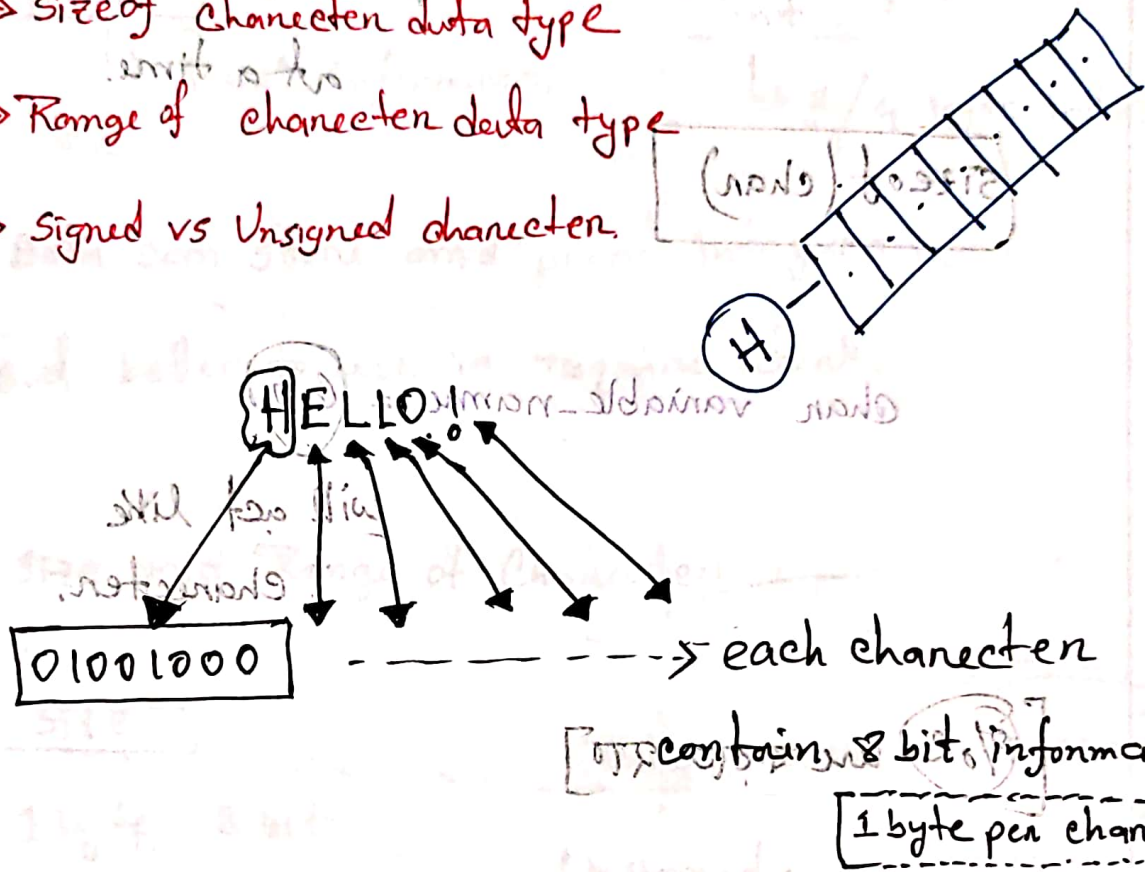 Sizeof Charecter data type
Range of charecter data type
Signed vs Unsigned charecter.
H
HELLO!
01001000 each charecter
contain 8 bit
1 byte per char